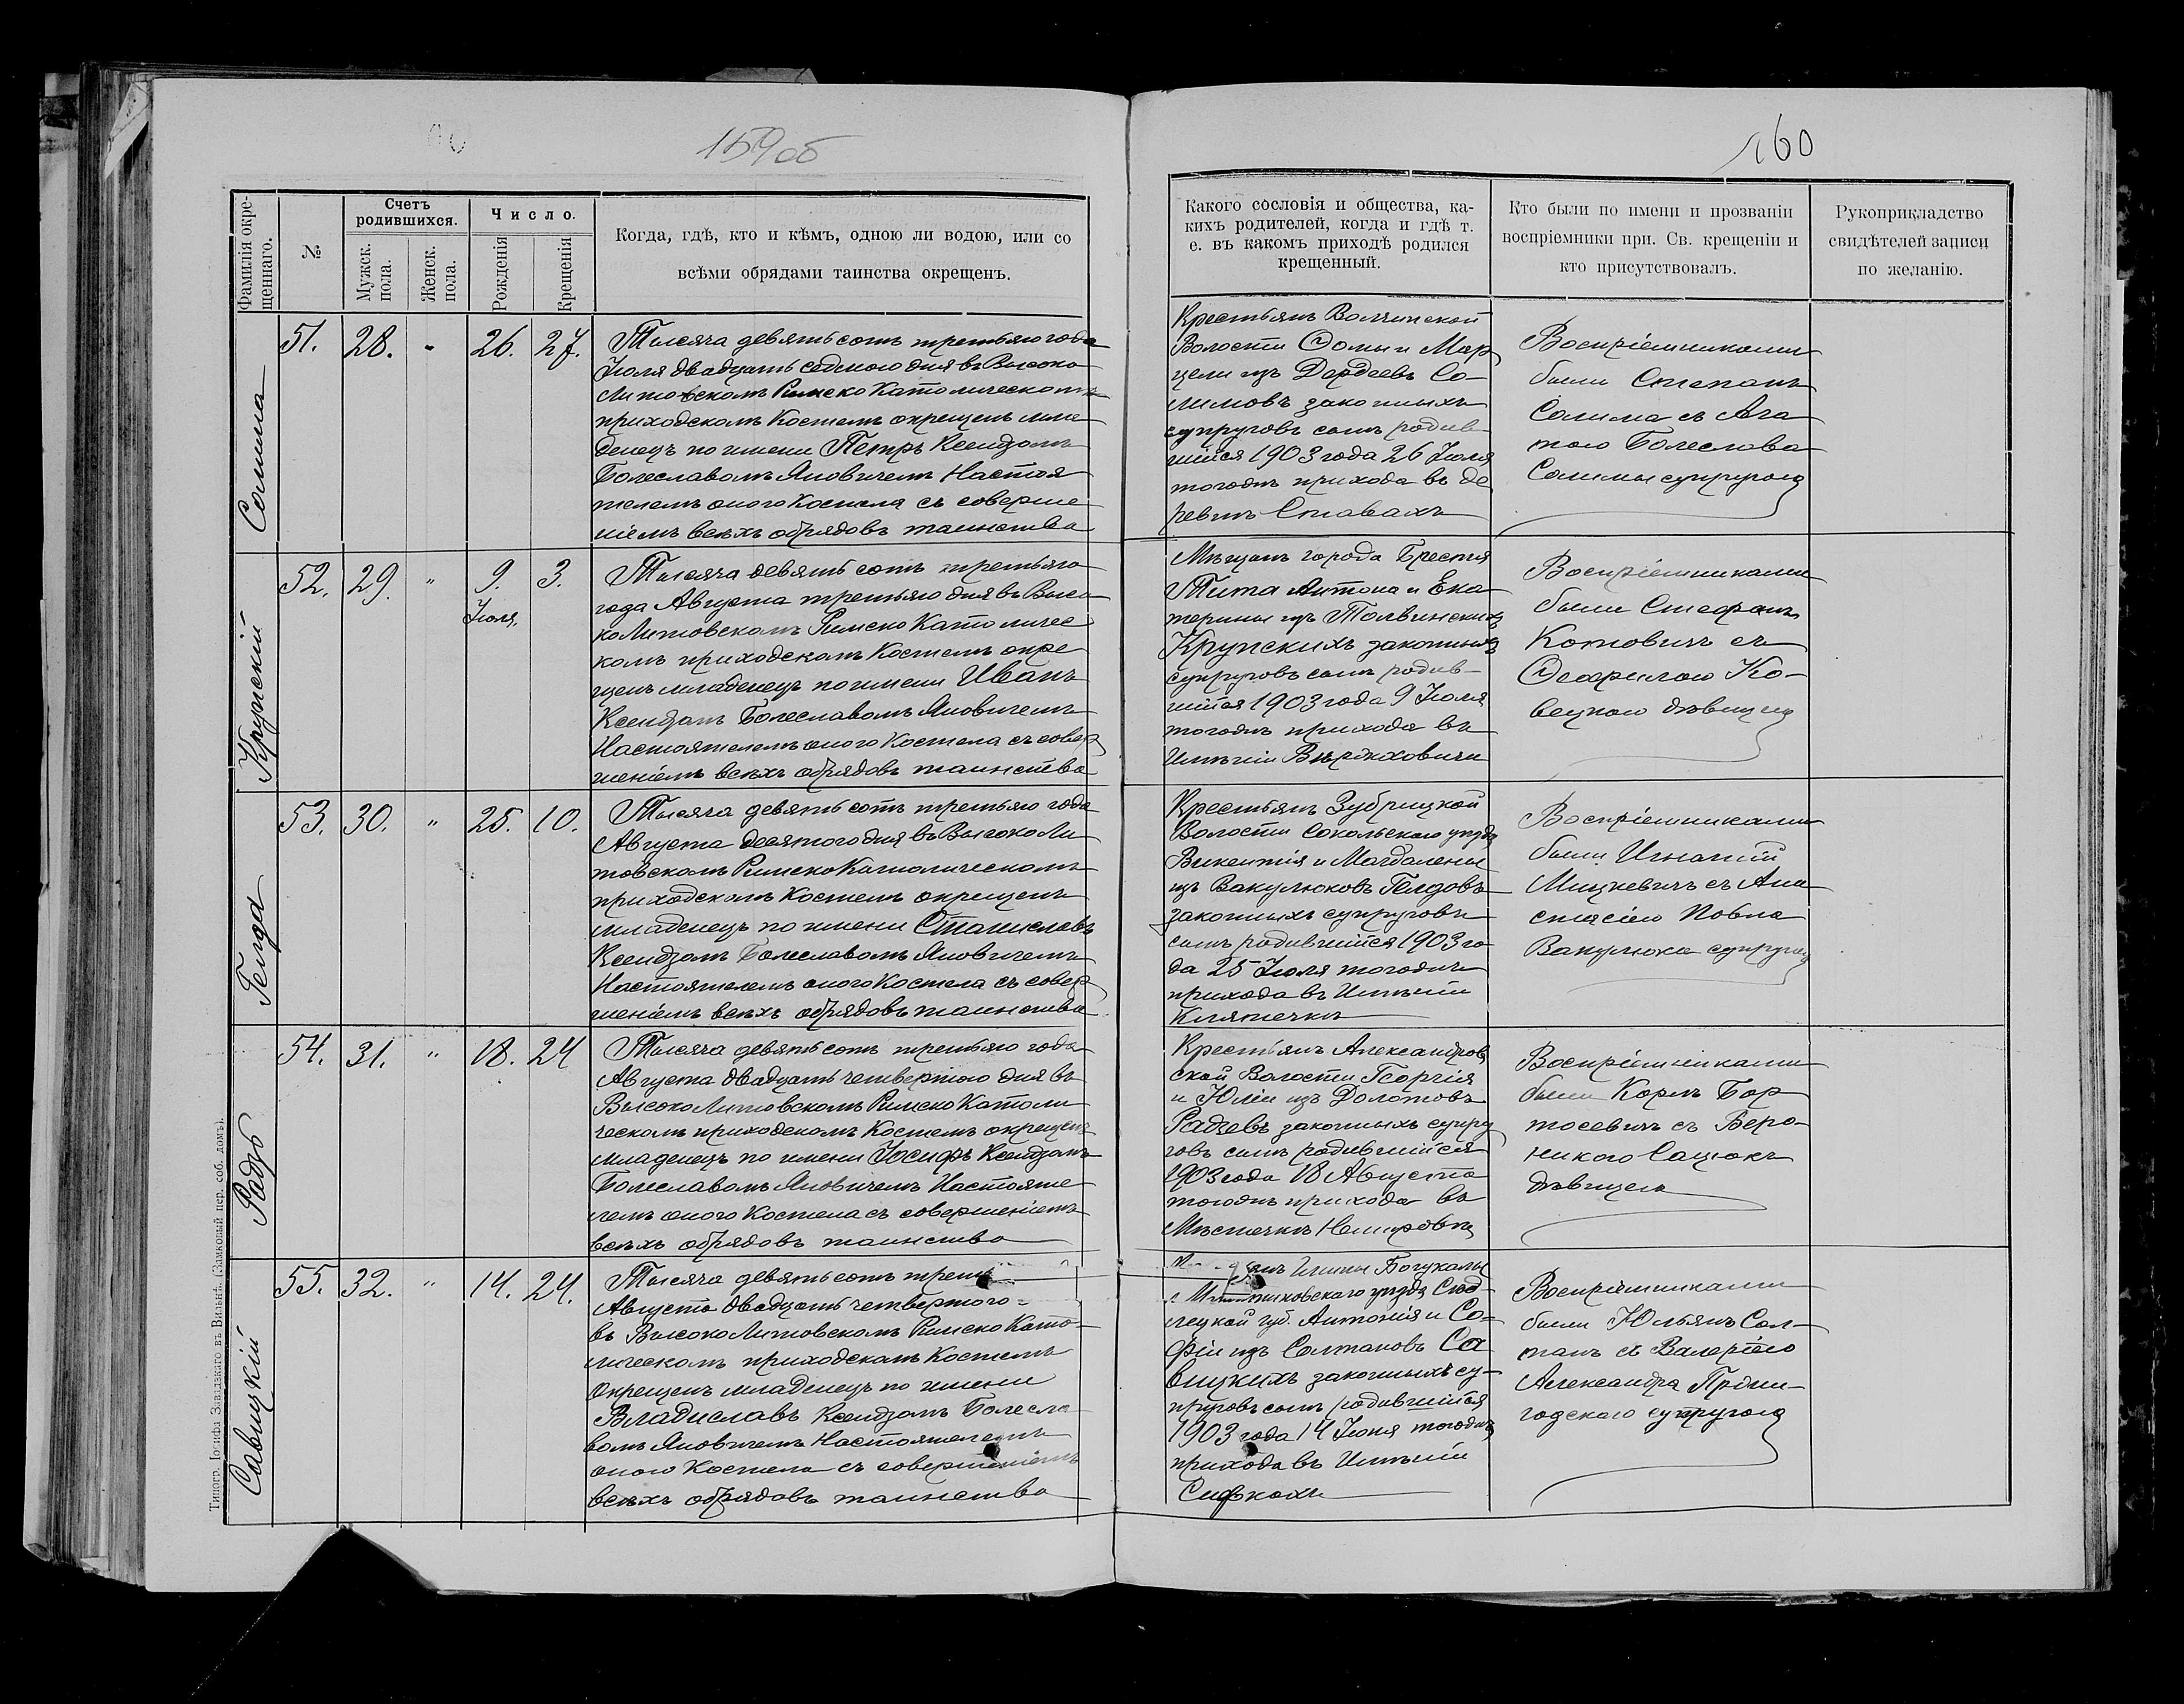 159об
160
Фамилія окре-
щеннаго.
№
Счетъ
родившихся.
Мужск.
пола.
Женск.
пола.
Число.
Рожденія
Крещенія
Когда, гдѣ, кто и кѣмъ, одною ли водою, или со
всѣми обрядами таинства окрещенъ.
Какого сословія и общества, ка-
кихъ родителей, когда и гдѣ т.
е. въ какомъ приходѣ родился
крещенный.
Кто были по имени и прозваніи
воспріемники при. Св. крещеніи и
кто присутствовалъ.
Рукоприкладство
свидѣтелей записи
по желанію.
Солима
51.
28.
-
26.
27.
Тысяча девятьсотъ третьяго года
Іюля двадцать седьмого дня въ Высоко
Литовскомъ Римско Католическомъ
приходскомъ Костелѣ окрещенъ мла
денецъ по имени Петръ Ксендзомъ
Болеславомъ Яновичемъ Настоя
телемъ оного Костела съ соверше
ніемъ всѣхъ обрядовъ таинства
Крестьянъ Волчинской
Волости Ѳомы и Мар
цели изъ Дердеевъ Со-
лимовъ законныхъ
супруговъ сынъ родив-
шійся 1903 года 26 Іюля
тогожъ прихода въ де
ревнѣ Ставахъ
Воспріемниками
были Степанъ
Солима съ Ага
тою Болеслава
Солимы супругою
Крупскій
52.
29.
"
9.
Іюля,
3.
Тысяча девятьсотъ третьяго
года Августа третьяго дня въ Высо
ко Литовскомъ Римско Католичес
комъ приходскомъ Костелѣ окре
щенъ младенецъ по имени Иванъ
Ксендзомъ Болеславомъ Яновичемъ
Настоятелемъ оного Костела съ совер
шеніемъ всѣхъ обрядовъ таинства
Мѣщанъ города Бреста
Тита Антона и Ека
терины изъ Толвинскихъ
Крупскихъ законныхъ
супруговъ сынъ родив-
шійся 1903 года 9 Іюля
тогожъ прихода въ
Имѣніи Вѣрдиховичи
Воспріемниками
были Стефанъ
Котовичъ съ
Ѳеофилою Ко-
вецкою дѣвицею
Гелда
53.
30.
"
25.
10.
Тысяча девятьсотъ третьяго года
Августа десятого дня въ Высоко Ли
товскомъ Римско Католическомъ
приходскомъ Костелѣ окрещенъ
младенецъ по имени Станиславъ
Ксендзомъ Болеславомъ Яновичемъ
Настоятелемъ оного Костела съ совер
шеніемъ всѣхъ обрядовъ таинства
Крестьянъ Зубрицкой
Волости Сокольскаго уѣзда
Викентія и Магдалены
изъ Вакулюковъ Гелдовъ
законныхъ супруговъ
сынъ родившійся 1903 го
да 25 Іюля тогожъ
прихода въ Имѣніи
Воспріемниками
были Игнатій
Мицкевичъ съ Ана
стасіею Повла
Вакулюка супругою
Радзь
54.
31.
"
18.
24
Тысяча девятьсотъ третьяго года
Августа двадцать четвертого дня въ
Высоко Литовскомъ Римско Католи
ческомъ приходскомъ Костелѣ окрещенъ
младенецъ по имени Іосифъ Ксендзомъ
Болеславомъ Яновичемъ Настояте
лемъ оного Костела съ совершеніемъ
всѣхъ обрядовъ таинства
Крестьянъ Александров
ской Волости Георгія
и Юліи изъ Долотовъ
Радзевъ законныхъ супру
говъ сынъ родившійся
1903 года 18 Августа
тогожъ прихода въ
Мѣстечкѣ Немировѣ
Воспріемниками
были Карлъ Бар
тосевичъ съ Веро-
никою Сацюкъ
дѣвицею
Савицкій
55.
32.
"
14.
24.
Тысяча девятьсотъ треть
Августа двадцать четвертого
въ Высоко Литовскомъ Римско Като-
лическомъ приходскомъ Костелѣ
окрещенъ младенецъ по имени
Владиславъ Ксендзомъ Болесла
вомъ Яновичемъ Настоятелемъ
оного Костела съ совершеніемъ
всѣхъ обрядовъ таинства
Гмины Богукалы
уѣзда Сѣд-
лецкой губ. Антонія и Со-
фіи изъ Солтановъ Са
вицкихъ законныхъ су-
пруговъ сынъ родившійся
1903 года 14 Іюня тогожъ
прихода въ Имѣніи
Сифкахъ
Воспріемниками
были Юльянъ Сол-
танъ съ Валеріею
Александра
супругою
Типогр. Іосифа Завадзкаго въ Вильнѣ. (Замковый пер. соб. домъ).